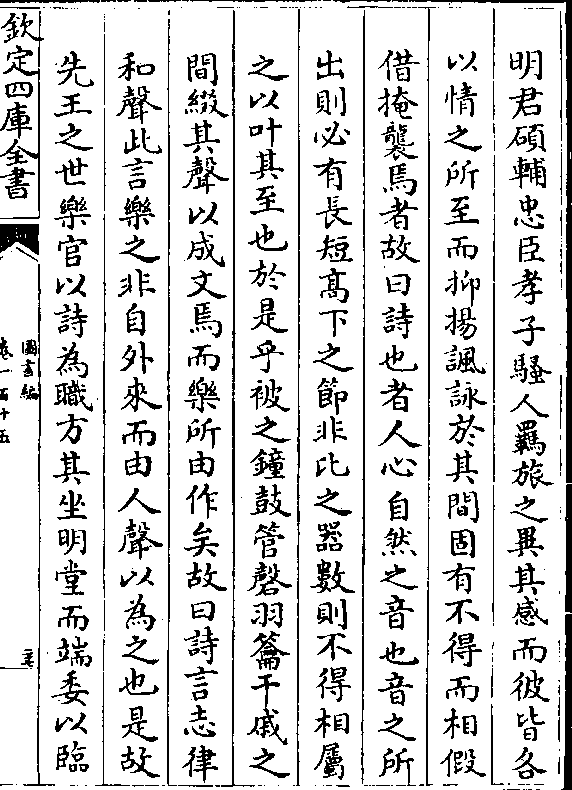 明君碩輔忠臣孝子騷人羈旅之異其感而彼皆各
以情之所至而抑揚諷詠於其間固有不得而相假
借掩襲焉者故曰詩也者人心自然之音也音之所
出則必有長短髙下之節非比之器數則不得相屬
之以叶其至也於是乎被之鐘鼓管磬羽籥干戚之
間綴其聲以成文焉而樂所由作矣故曰詩言志律
和聲此言樂之非自外來而由人聲以為之也是故
先王之世樂官以詩為職方其坐明堂而端委以臨
欽定四庫全書
圖書編
卷一百十五